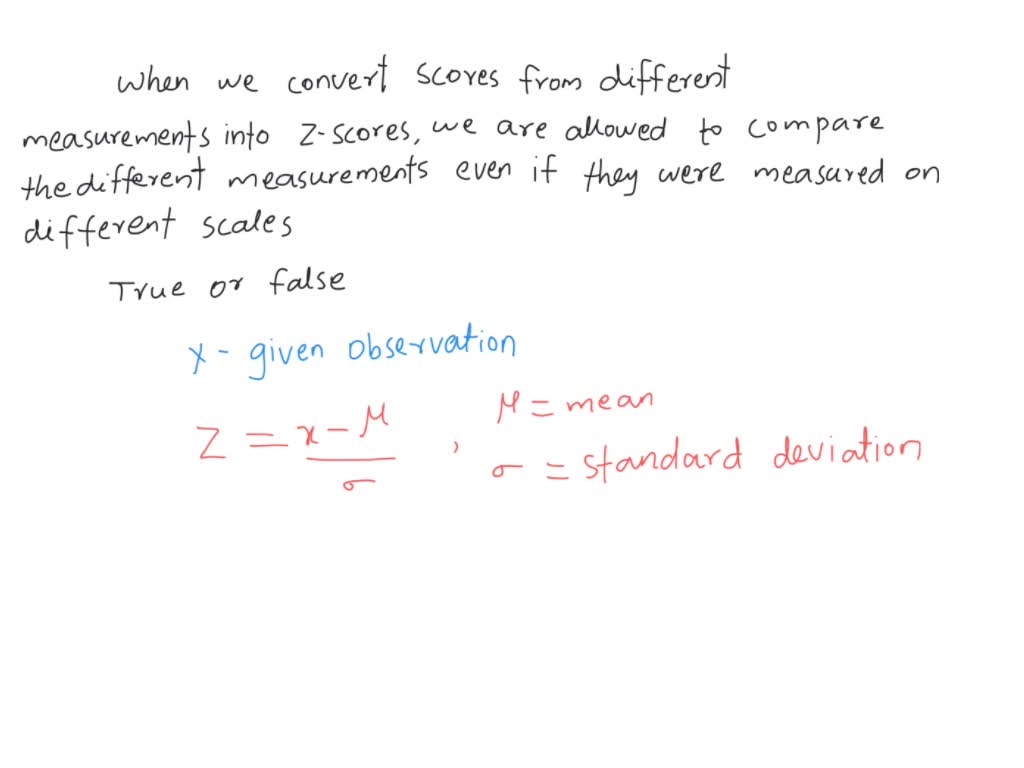 When we convert scores from different
measurements into Z-scores, we are allowed to compare
the different measurements even if they were measured on
different scales
True or false
x - given observation
Z = x - μ / σ , μ = mean
σ = standard deviation